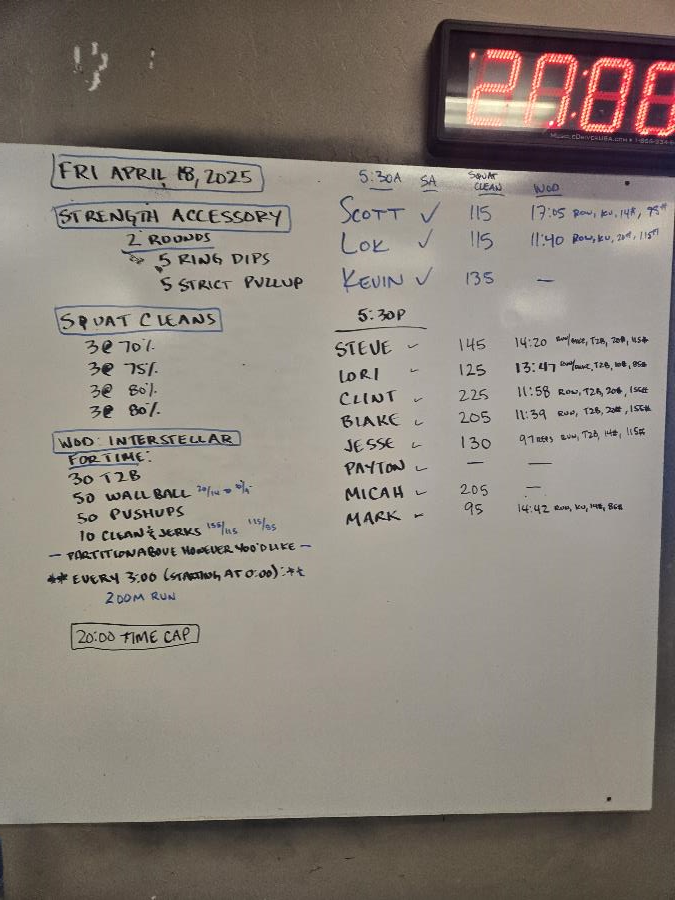 FRI APRIL 18, 2025
STRENGTH ACCESSORY
2 ROUNDS
5 RING DIPS
5 STRICT PULLUP
SQUAT CLEANS
3@ 70%
3@ 75%
3@ 80%
3@ 80%
WOD: INTERSTELLAR
FOR TIME:
30 T2B
50 WALL BALL 20/14
50 PUSHUPS
10 CLEAN & JERKS 155/115 115/85
— PARTITION ABOVE HOWEVER YOU'D LIKE —
** EVERY 3:00 (STARTING AT 0:00): **
200M RUN
20:00 TIME CAP
5:30A SA SQUAT CLEAN WOD
SCOTT ✓ 115 17:05 ROW, KU, 14#, 95#
LOK ✓ 115 11:40 ROW, KU, 20#, 115#
KEVIN ✓ 135 —
5:30P
STEVE ✓ 145 14:20 T2B, 20#, 115#
LORI ✓ 125 13:47 T2B, 85#
CLINT ✓ 225 11:58 ROW, T2B, 20#, 155#
BLAKE ✓ 205 11:39 RUN, T2B, 20#, 155#
JESSE ✓ 130 97 REPS RUN, T2B, 14#, 115#
PAYTON ✓ — —
MICAH ✓ 205 —
MARK ✓ 95 14:42 KU, 14#
MUSCLEDRIVERUSA.COM